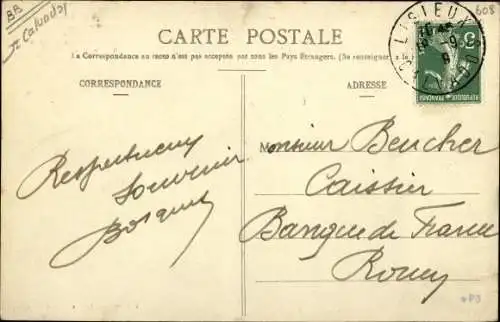 BB
Calvados
608
CARTE POSTALE
La Correspondance au recto n'est pas acceptée par tous les Pays Étrangers. (Se renseigner à la
CORRESPONDANCE
ADRESSE
LISIEUX
CALVADOS
5
REPUBLIQUE FRANÇAISE
Respectueux
Souvenir
Monsieur Beucher
Caissier
Banque de France
Rouen